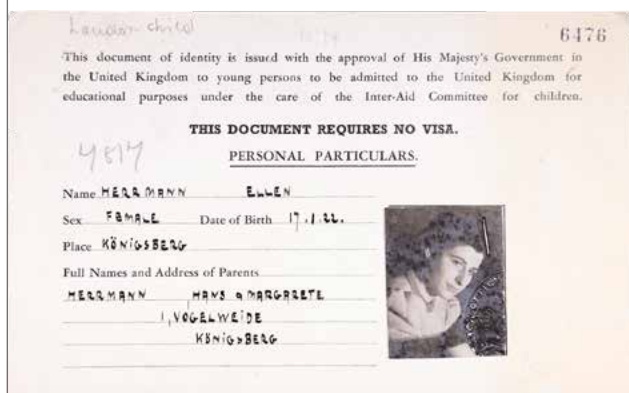 London child
6476
This document of identity is issued with the approval of His Majesty's Government in
the United Kingdom to young persons to be admitted to the United Kingdom for
educational purposes under the care of the Inter-Aid Committee for children.
THIS DOCUMENT REQUIRES NO VISA.
4817
PERSONAL PARTICULARS.
Name HERRMANN ELLEN
Sex FEMALE Date of Birth 17.1.22.
Place KÖNIGSBERG
Full Names and Address of Parents
HERRMANN HANS & MARGARETE
1, VOGELWEIDE
KÖNIGSBERG